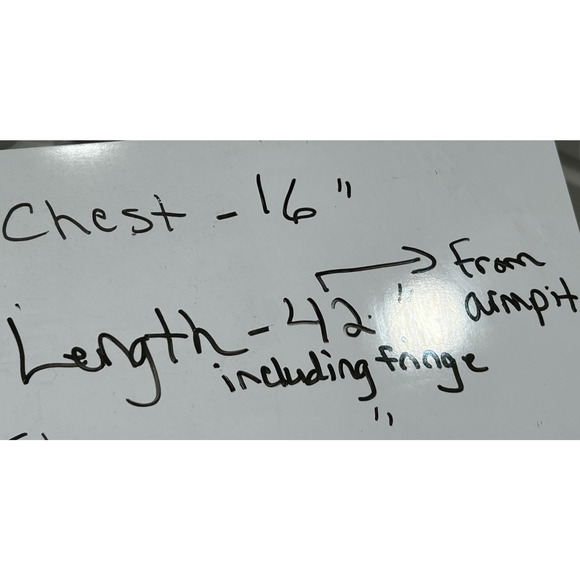 Chest - 16"
Length - 42" → from armpit
including fringe
"